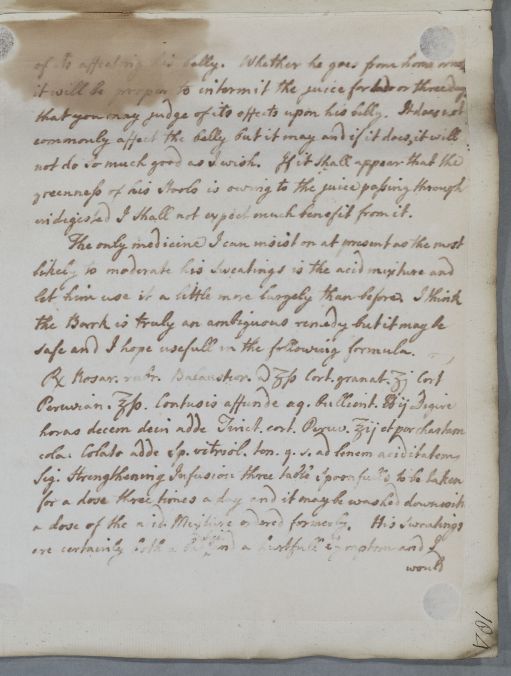 of its affecting his belly. Whether he goes from home or not
it will be proper to intermit the juice for two or three days
that you may judge of its effects upon his belly. It does not
commonly affect the belly but it may and if it does, it will
not do so much good as I wish. If it shall appear that the
greenness of his stools is owing to the juice passing through
undigested I shall not expect much benefit from it.
The only medicine I can insist on at present as the most
likely to moderate his sweatings is the acid mixture and
let him use it a little more largely than before. I think
the Bark is truly an ambiguous remedy but it may be
safe and I hope usefull in the following formula.
Rx Rosar. rubr. Balaustior. a ʒſs Cort. granat. ʒj Cort
Peruvian. ʒſs. Contusis affunde aq. bullient. ℔ij Digere
horas decem dein adde Tinct. cort. Peruv. ʒij et per chartam
cola. Colato adde Sp. vitriol. ten. q. s. ad lenem aciditatem
Sig. Strengthening Infusion three table spoonfulls to be taken
for a dose three times a day and it may be washed down with
a dose of the acid Mixture ordered formerly. His sweatings
are certainly both a and a hurtfull symptom and I
would
164